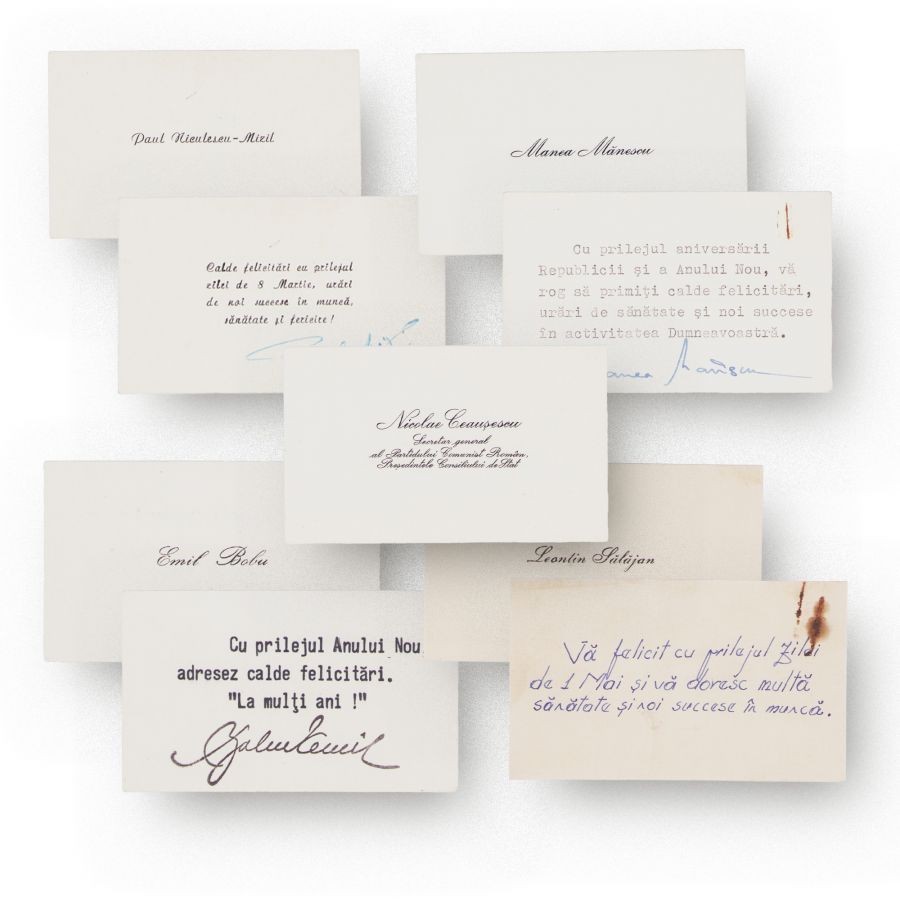 Paul Niculescu-Mizil
Manea Mănescu
Calde felicitări cu prilejul
zilei de 8 Martie, urări
de noi succese în muncă,
sănătate și fericire!
Cu prilejul aniversării
Republicii și a Anului Nou, vă
rog să primiți calde felicitări,
urări de sănătate și noi succese
în activitatea Dumneavoastră.
Manea Mănescu
Nicolae Ceaușescu
Secretar general
al Partidului Comunist Român,
Președintele Consiliului de Stat
Emil Bobu
Leontin Sălăjan
Cu prilejul Anului Nou
adresez calde felicitări.
"La mulţi ani !"
Bobu Emil
Vă felicit cu prilejul Zilei
de 1 Mai și vă doresc multă
sănătate și noi succese în muncă.